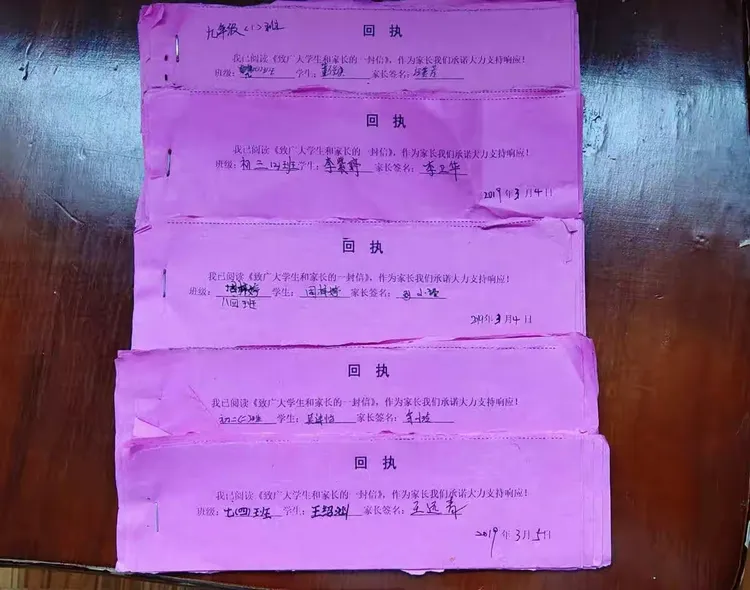 九年级(1)班
回 执
我已阅读《致广大学生和家长的一封信》，作为家长我们承诺大力支持响应！
班级： 学生： 家长签名：
回 执
我已阅读《致广大学生和家长的一封信》，作为家长我们承诺大力支持响应！
班级：初三(2)班学生：李晨婷 家长签名：李卫华
2019年3月4日
回 执
我已阅读《致广大学生和家长的一封信》，作为家长我们承诺大力支持响应！
班级： 学生： 家长签名：
八四班
2019年3月4日
回 执
我已阅读《致广大学生和家长的一封信》，作为家长我们承诺大力支持响应！
学生： 家长签名：
回 执
我已阅读《致广大学生和家长的一封信》，作为家长我们承诺大力支持响应！
班级：七(四)班 学生： 家长签名：
2019年3月5日